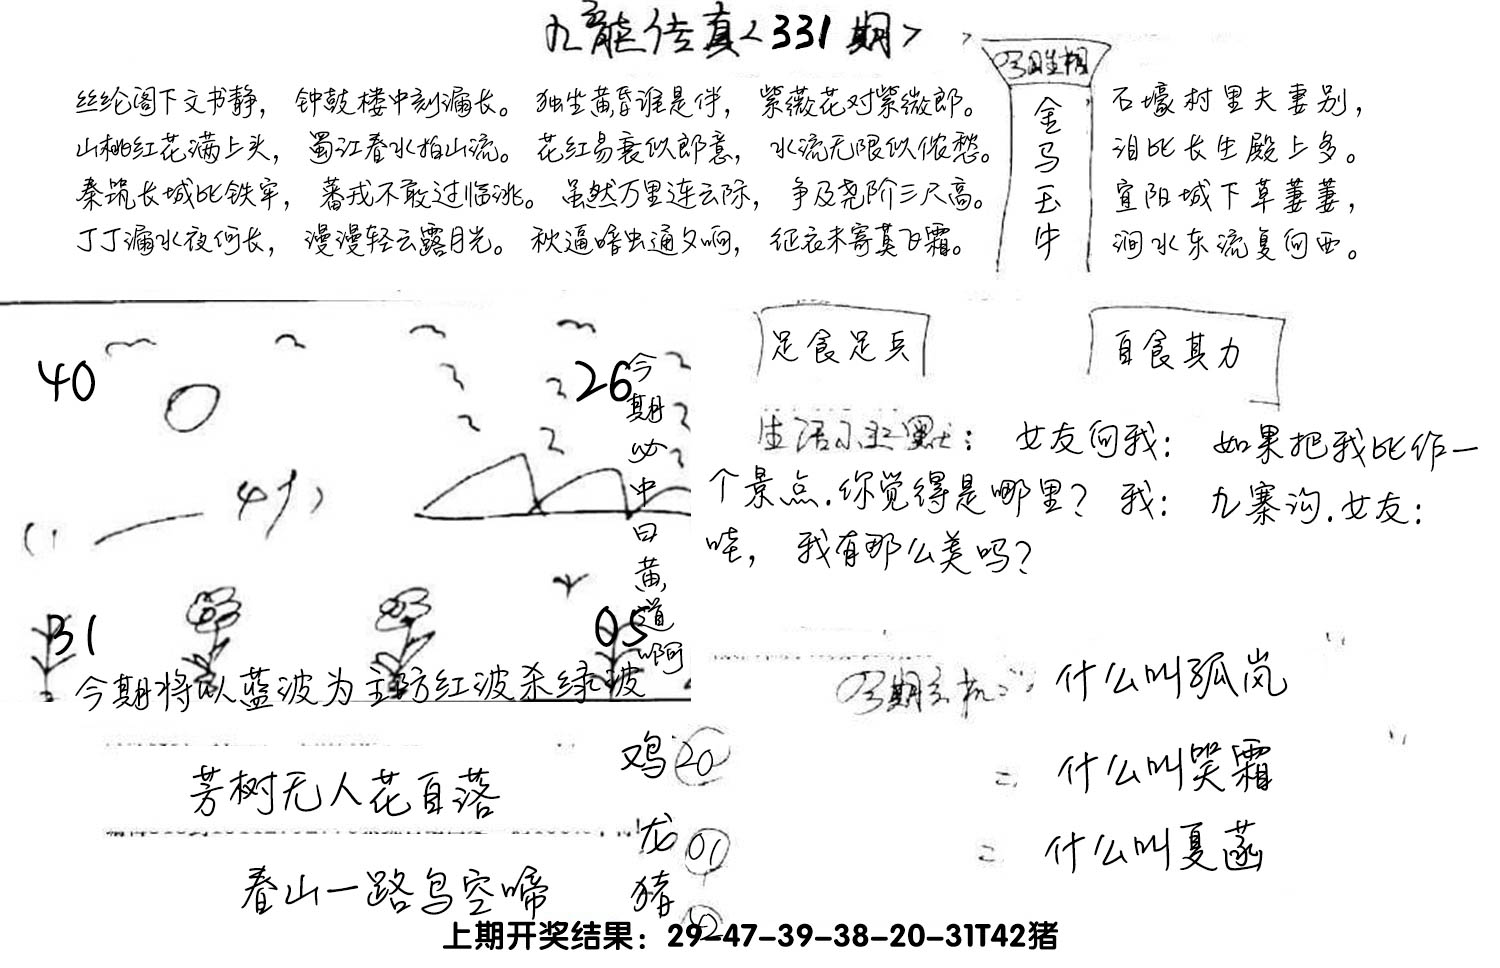 九龙传真<331期>
今期生相
金马玉牛
丝纶阁下文书静，钟鼓楼中刻漏长。独坐黄昏谁是伴，紫薇花对紫微郎。
山桃红花满上头，蜀江春水拍山流。花红易衰似郎意，水流无限似侬愁。
秦筑长城比铁牢，蕃戎不敢过临洮。虽然万里连云际，争及尧阶三尺高。
丁丁漏水夜何长，漫漫轻云露月光。秋逼暗虫通夕响，征衣未寄莫飞霜。
石壕村里夫妻别，
泪比长生殿上多。
宜阳城下草萋萋，
涧水东流复向西。
40
26
31
05
今期必中曰黄道啊
今期将以蓝波为主防红波杀绿波
足食足兵
自食其力
生活小幽默：女友问我：如果把我比作一
个景点.你觉得是哪里？我：九寨沟.女友：
哇，我有那么美吗？
今期玄机：什么叫孤岚
二 什么叫哭霜
二 什么叫夏菡
芳树无人花自落
春山一路鸟空啼
鸡 20
龙 01
猪
上期开奖结果：29-47-39-38-20-31T42猪